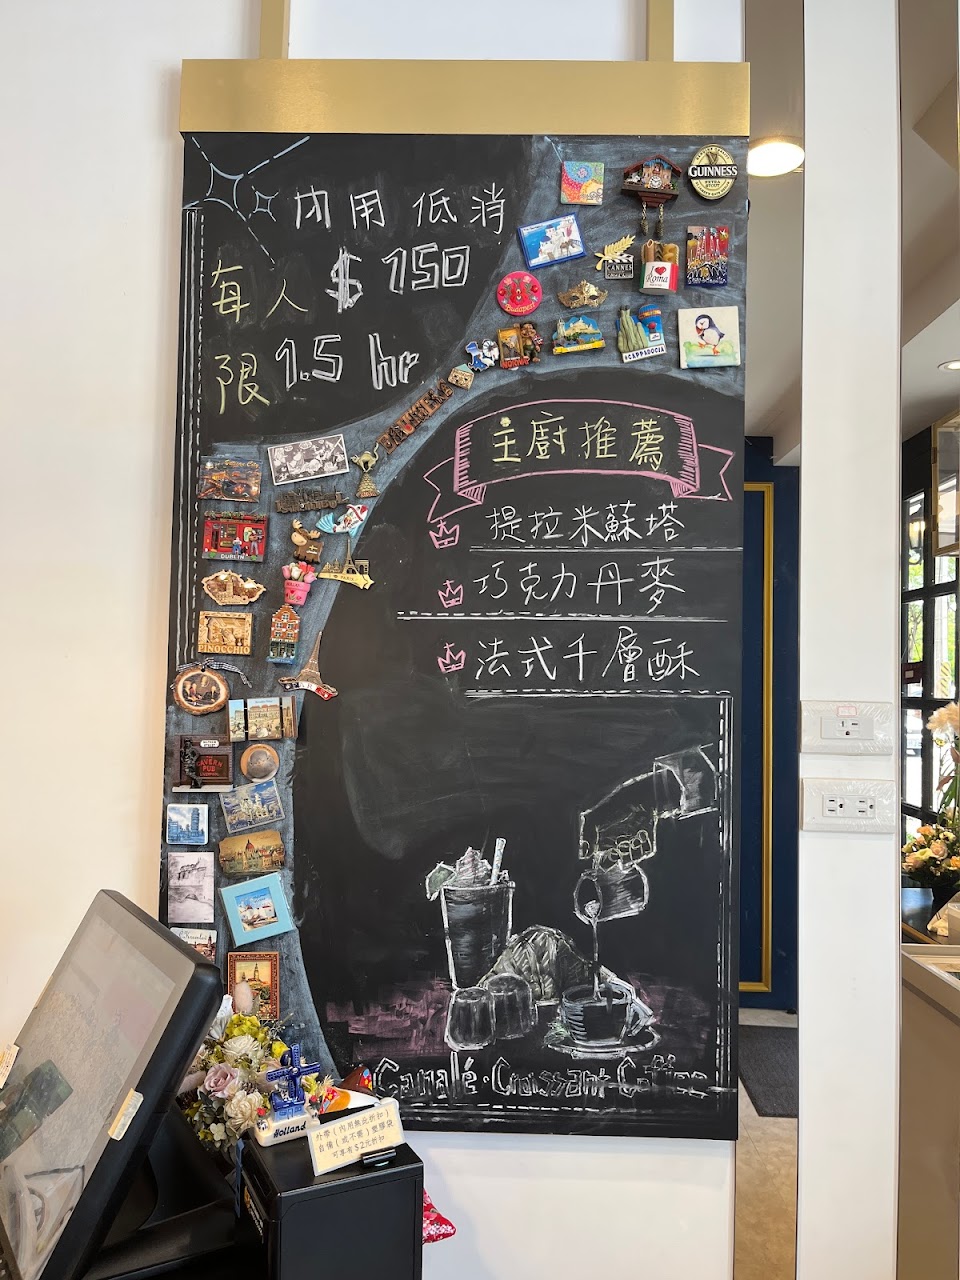 內用 低消
每人 $150
限 1.5 hr
GUINNESS
CANNES
I ♥
Roma
Budapest
CAPPADOCIA
主廚推薦
提拉米蘇塔
巧克力丹麥
法式千層酥
DUBLIN
PARIS
PINOCCHIO
CAVERN
PUB
Canelé · Croissant · Coffee
Holland
外帶(內用無此折扣)
自備(或不需)塑膠袋
可享有$2元折扣